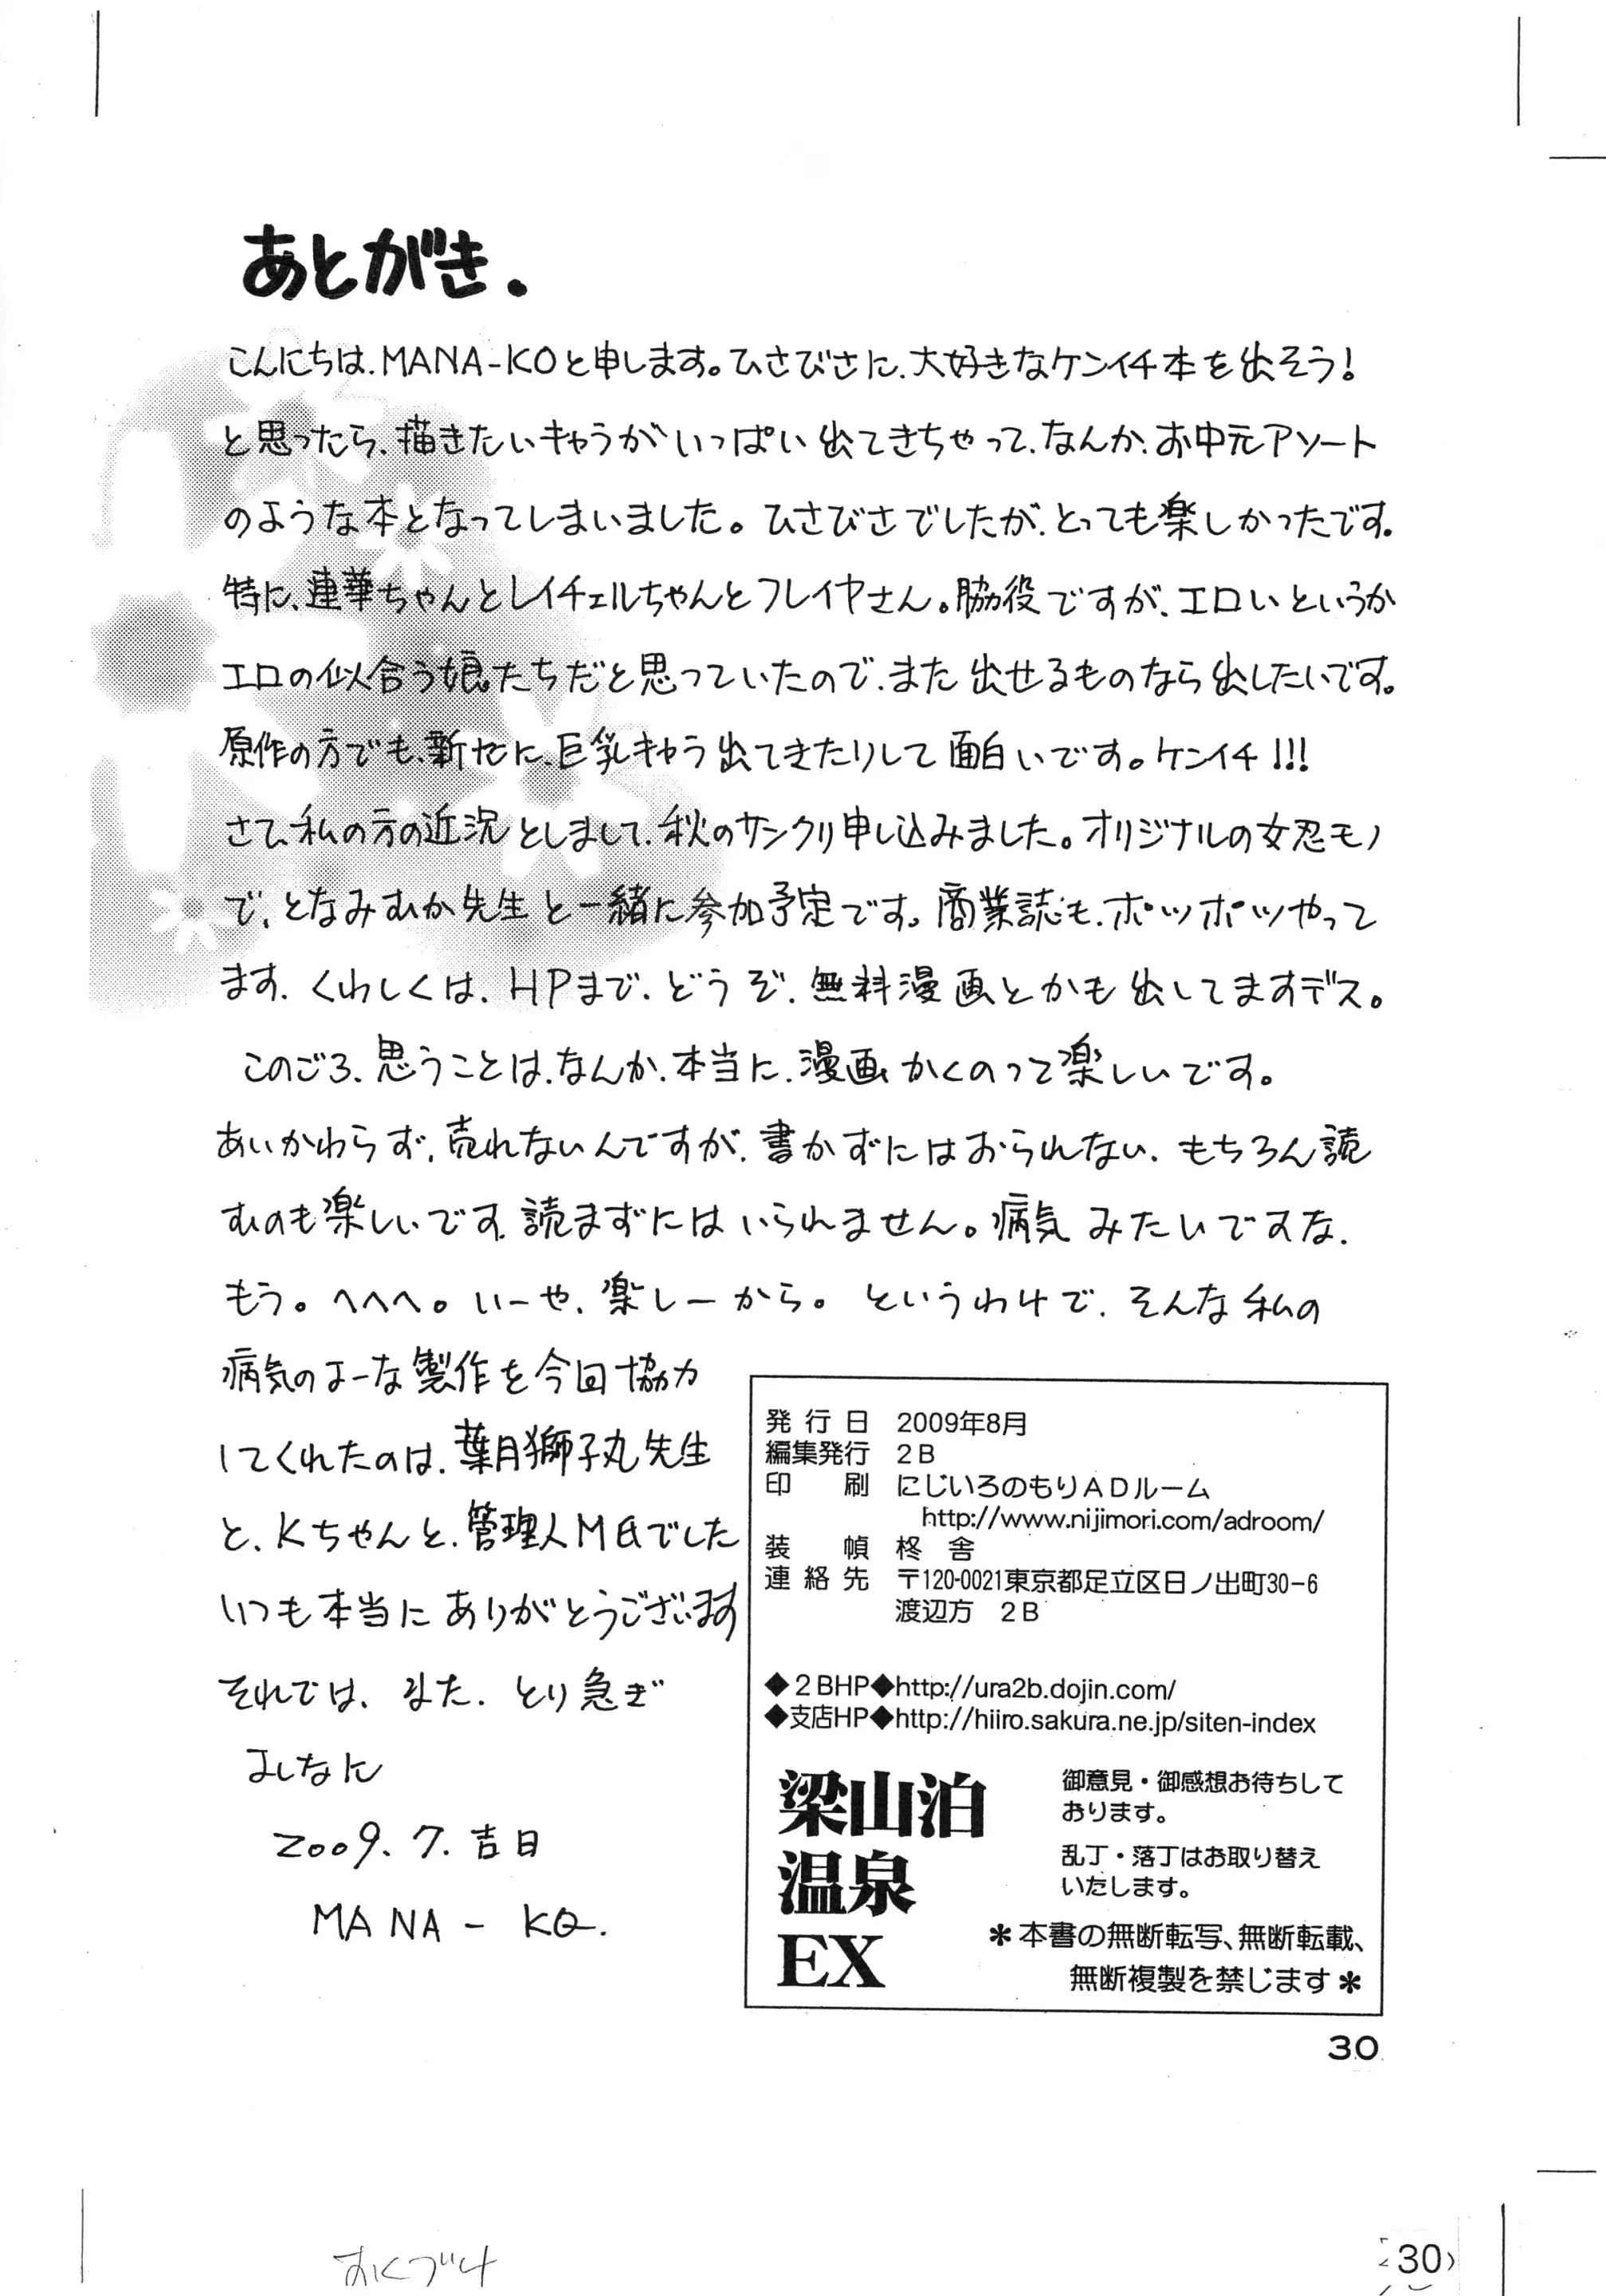 あとがき.
こんにちは、MANA-KOと申します。ひさびさに、大好きなケンイチ本を出そう！
と思ったら、描きたいキャラがいっぱい出てきちゃって、なんか、お中元アソート
のような本となってしまいました。ひさびさでしたが、とっても楽しかったです。
特に、連華ちゃんとレイチェルちゃんとフレイヤさん。脇役ですが、エロいというか
エロの似合う娘たちだと思っていたので、また出せるものなら出したいです。
原作の方でも、新たに、巨乳キャラ出てきたりして面白いです。ケンイチ!!!
さて、私の方の近況としまして、秋のサンクリ申し込みました。オリジナルの女忍モノ
で、となみむか先生と一緒に参加予定です。商業誌も、ポツポツやって
ます、くわしくは、HPまで、どうぞ、無料漫画とかも出してますデス。
このごろ、思うことは、なんか、本当に、漫画かくのって楽しいです。
あいかわらず、売れないんですが、書かずにはおられない、もちろん読
むのも楽しいです、読まずにはいられません。病気みたいですな、
もう。へへへ。いーや、楽しーから。というわけで、そんな私の
病気のよーな製作を今回協力
してくれたのは、葉月獅子丸先生
と、Kちゃんと、管理人M氏でした
いつも本当にありがとうございます
それでは、また、とり急ぎ
よしなに
2009.7.吉日
MANA-KO.
発行日 2009年8月
編集発行 2B
印刷 にじいろのもりADルーム
http://www.nijimori.com/adroom/
装幀 柊舎
連絡先 〒120-0021東京都足立区日ノ出町30-6
渡辺方 2B
◆2BHP◆http://ura2b.dojin.com/
◆支店HP◆http://hiiro.sakura.ne.jp/siten-index
梁山泊
温泉
EX
御意見・御感想お待ちして
おります。
乱丁・落丁はお取り替え
いたします。
＊本書の無断転写、無断転載、
無断複製を禁じます＊
30
おくづけ
30